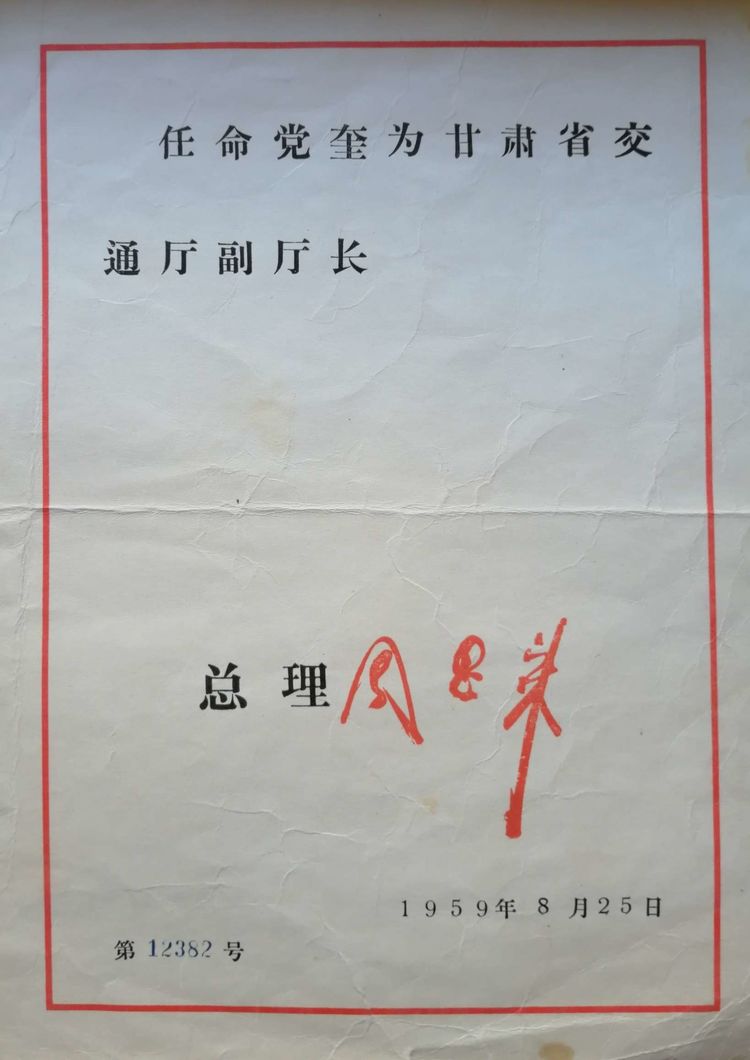 任命党奎为甘肃省交
通厅副厅长
总理 周恩来
1959年8月25日
第12382号